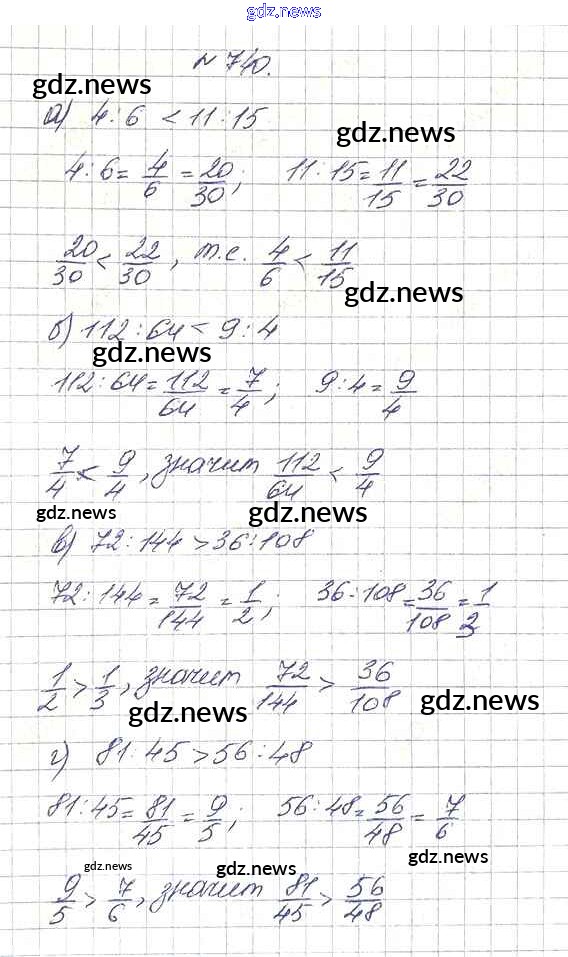 gdz.news
№ 740.
gdz.news
а) 4 : 6 < 11 : 15
gdz.news
4 : 6 = 4/6 = 20/30; 11 : 15 = 11/15 = 22/30
20/30 < 22/30, т.е. 4/6 < 11/15
gdz.news
б) 112 : 64 < 9 : 4
gdz.news
112 : 64 = 112/64 = 7/4; 9 : 4 = 9/4
7/4 < 9/4, значит 112/64 < 9/4
gdz.news gdz.news
в) 72 : 144 > 36 : 108
72 : 144 = 72/144 = 1/2; 36 : 108 = 36/108 = 1/3
1/2 > 1/3, значит 72/144 > 36/108
gdz.news gdz.news
г) 81 : 45 > 56 : 48
81 : 45 = 81/45 = 9/5; 56 : 48 = 56/48 = 7/6
gdz.news gdz.news gdz.news
9/5 > 7/6, значит 81/45 > 56/48